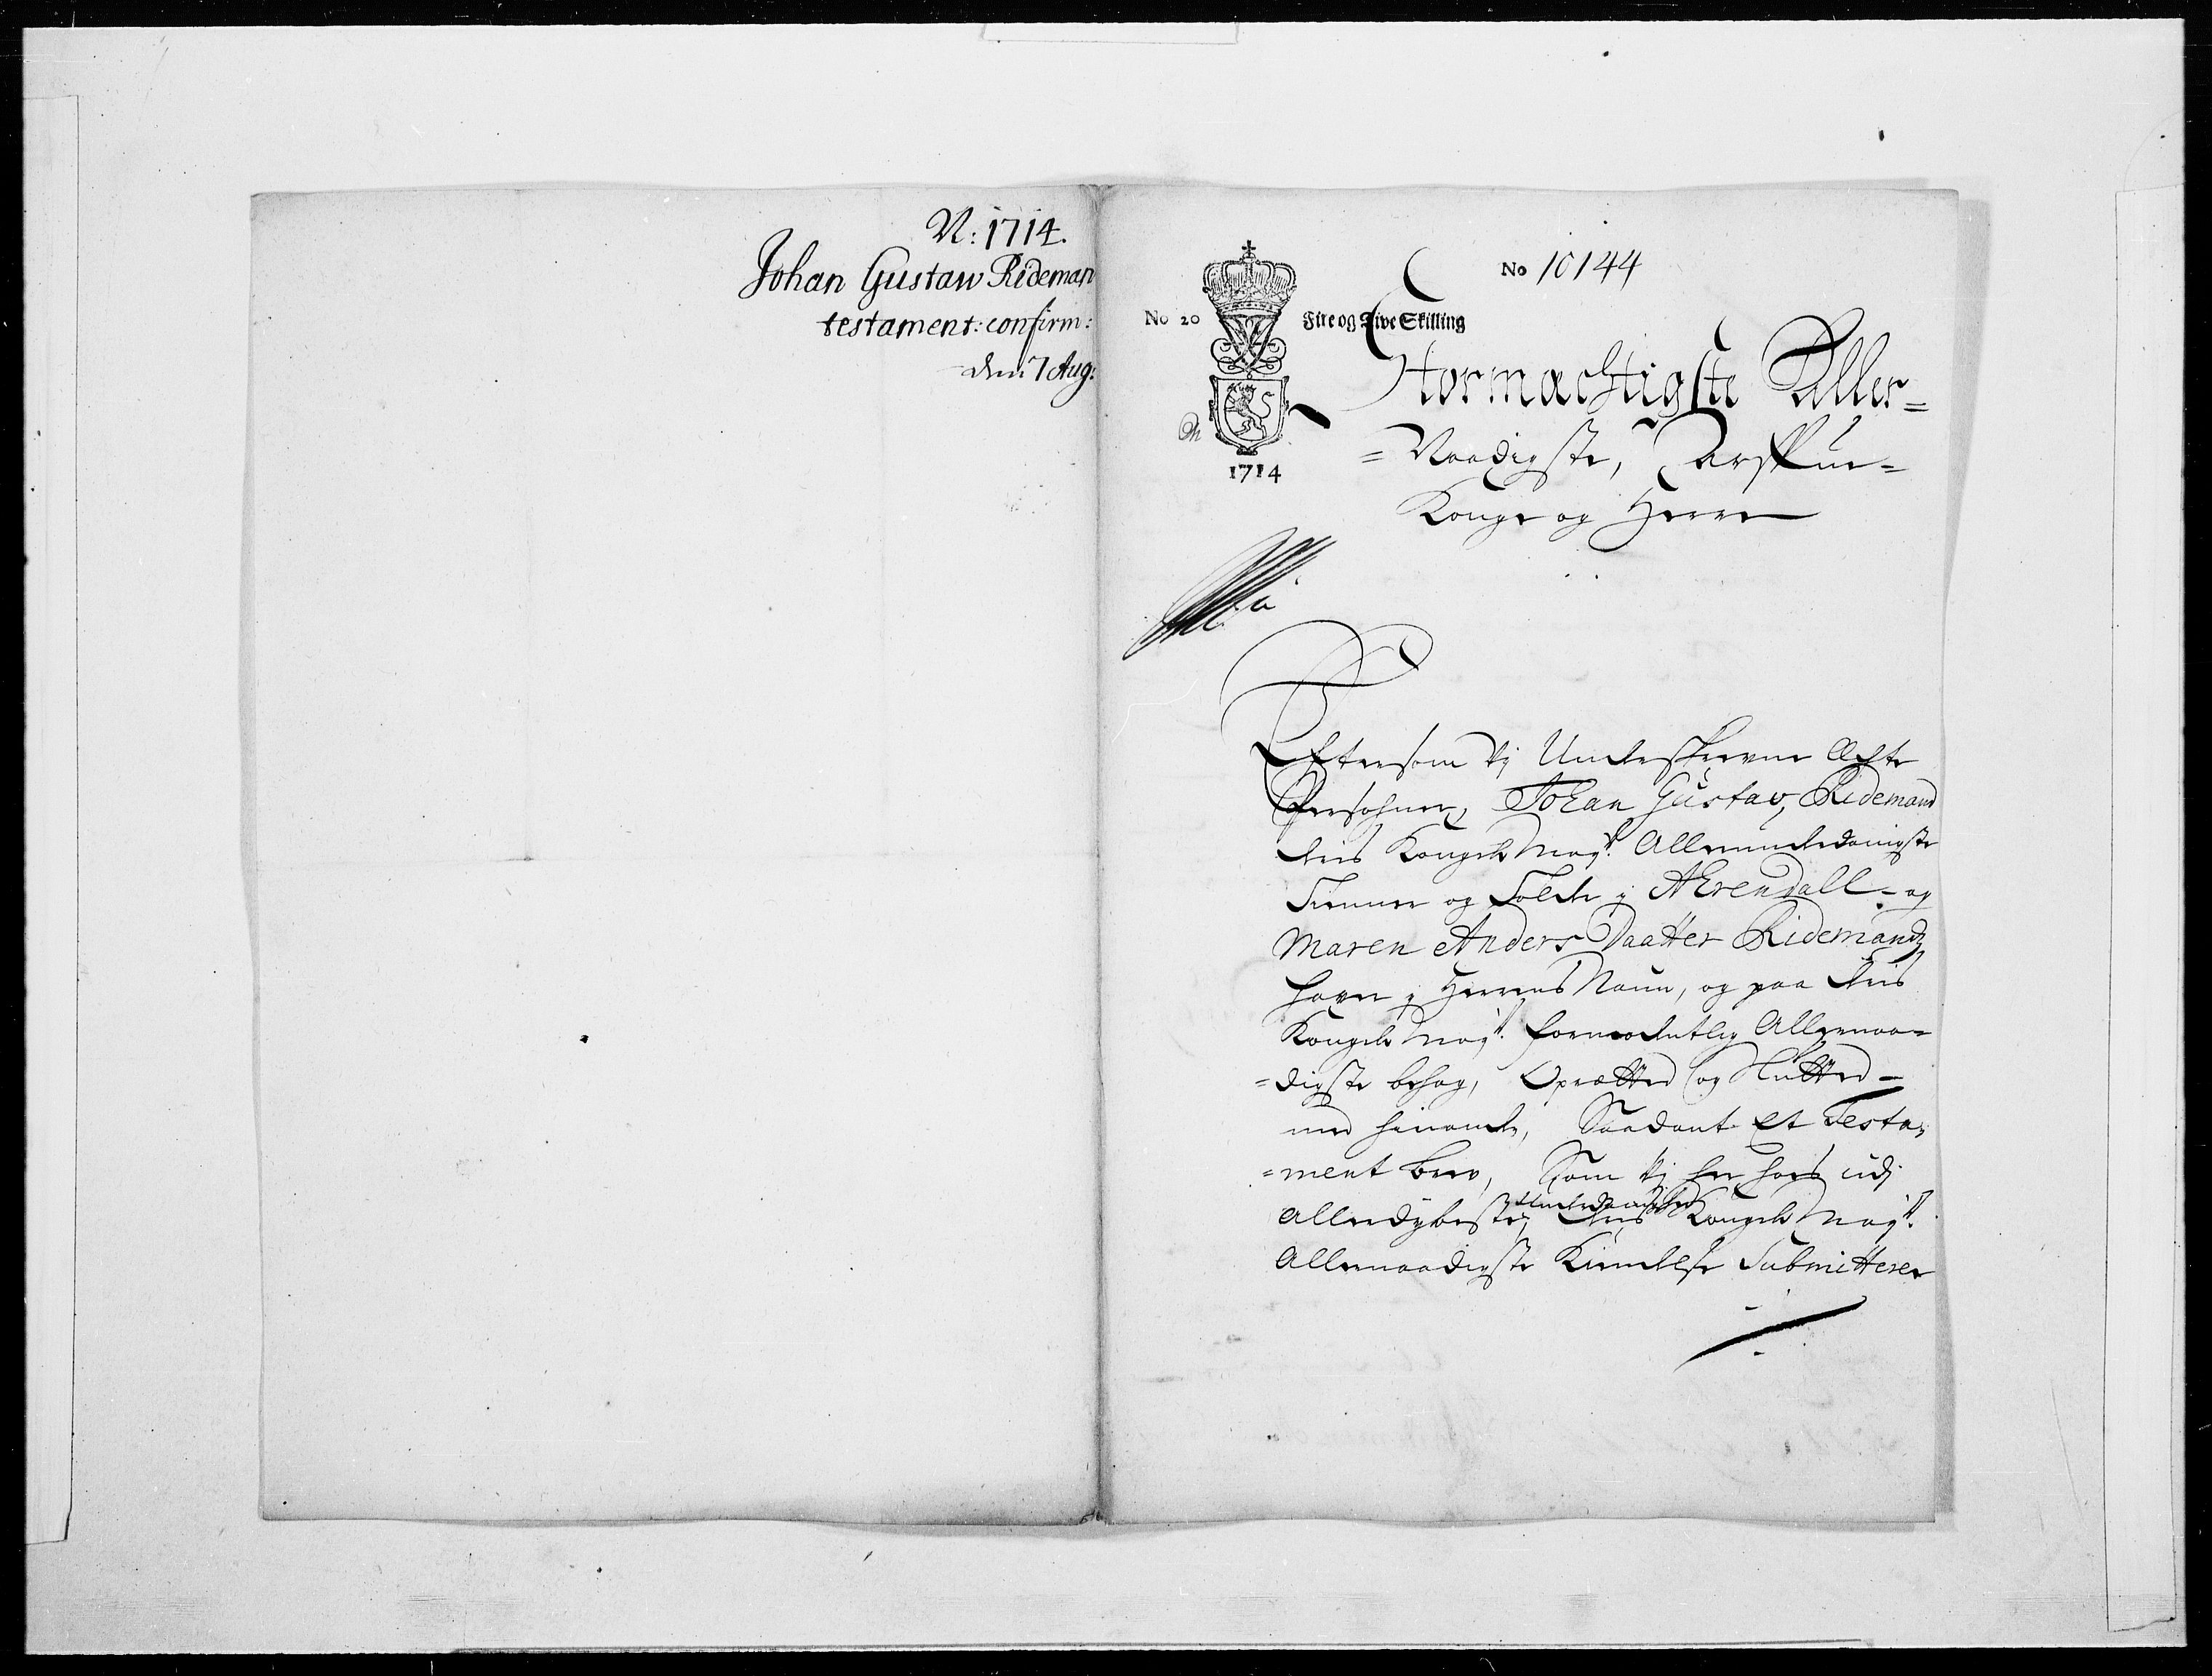 N: 1714.
Johan Gustaw Rideman
testament: confirm:
den 7 Aug:
No 10144
No 20 Fire og Tive Skilling
1714
Stormæchtigste Aller-
=Naadigste, Arffue-
Konge og Herre
Eftersom Vj Underskrevne Ægte
Persohner, Johan Gustav, Ridemand
Deris Kongel: May:tt Allerunderdanigste
Tienner og Tolder j AErendall - og
Maren Anders Daatter Ridemandz
hafver j Herrens Nafn, og paa Deris
Kongel: May:tt formodentlig Allernaa=
=digste behag, Oprætted og Slutted -
med hinanden, Saadant et Testa=
=ment brev, Som Vj her hos udj
Allerdybeste, Underdanighed Deris Kongel: May:tt
Allernaadigste Kiendelse Submitterer